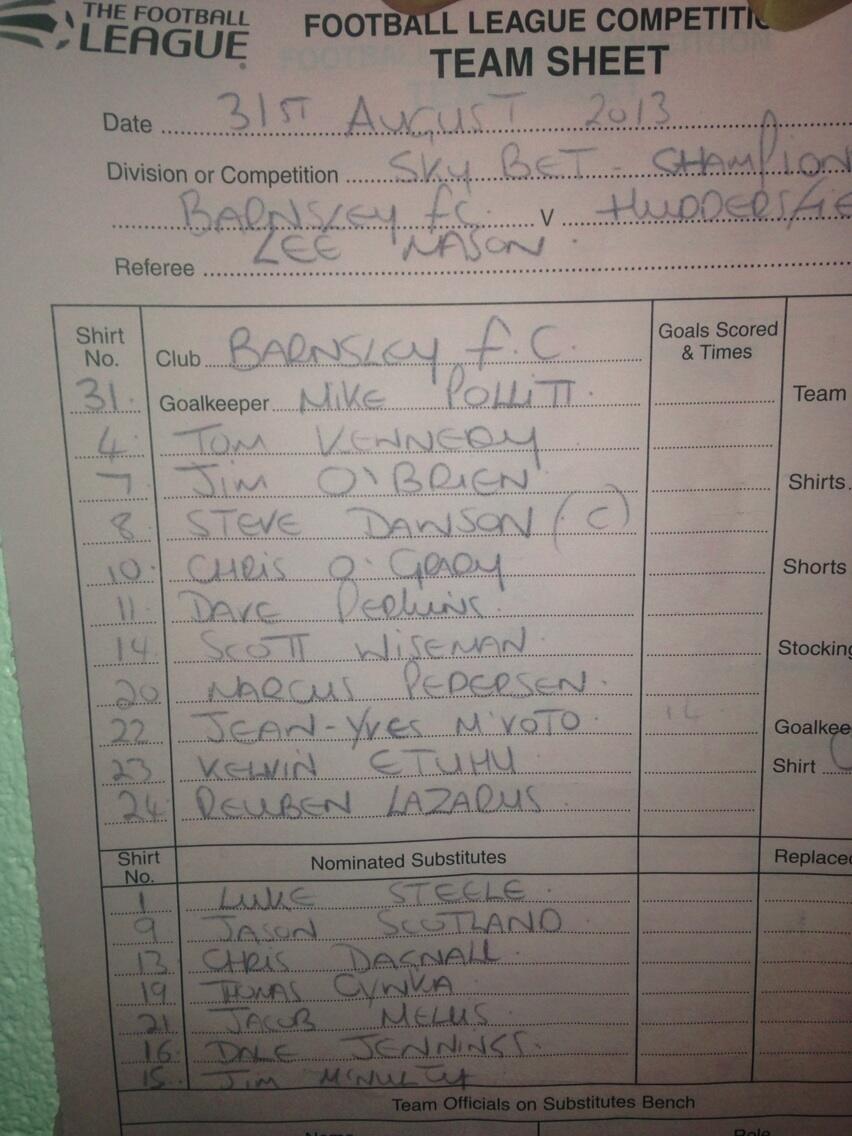 THE FOOTBALL
LEAGUE
FOOTBALL LEAGUE COMPETITIO
TEAM SHEET
Date 31ST AUGUST 2013
Division or Competition SKY BET - CHAMPION
BARNSLEY f.C. V HUDDERSFIE
Referee LEE MASON.
Shirt No. Club BARNSLEY f.C. Goals Scored & Times
31. Goalkeeper MIKE POLLITT. Team
4 TOM KENNEDY
7 JIM O'BRIEN Shirts
8 STEVE DAWSON (C)
10. CHRIS O'GRADY Shorts
11. DAVE PERKINS.
14. SCOTT WISEMAN Stocking
20 MARCUS PEDERSEN.
22 JEAN-YVES M'VOTO. Goalkee
23 KELVIN ETUHU Shirt
24 REUBEN LAZARUS.
Shirt No. Nominated Substitutes Replaced
1 LUKE STEELE.
9 JASON SCOTLAND
13 CHRIS DAGNALL.
19 TOMAS CYWKA
21 JACOB MELLIS
16. DALE JENNINGS.
15. JIM McNULTY
Team Officials on Substitutes Bench
Name Role